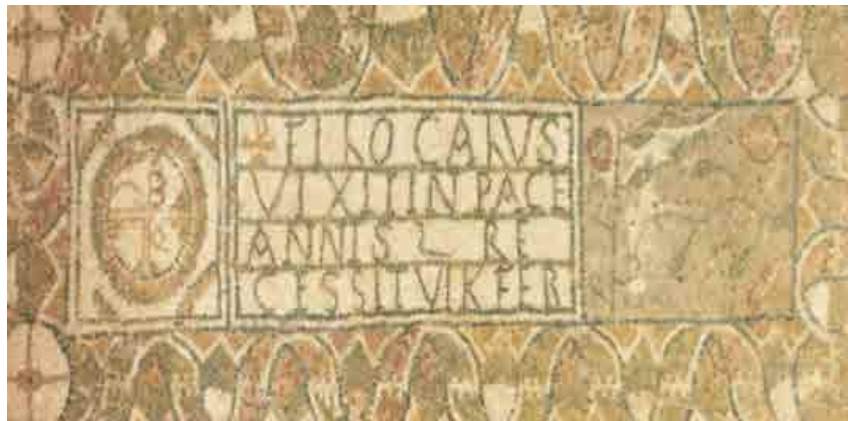 + FILOCALUS
VIXIT IN PACE
ANNIS L RE
CESSIT VI K FER